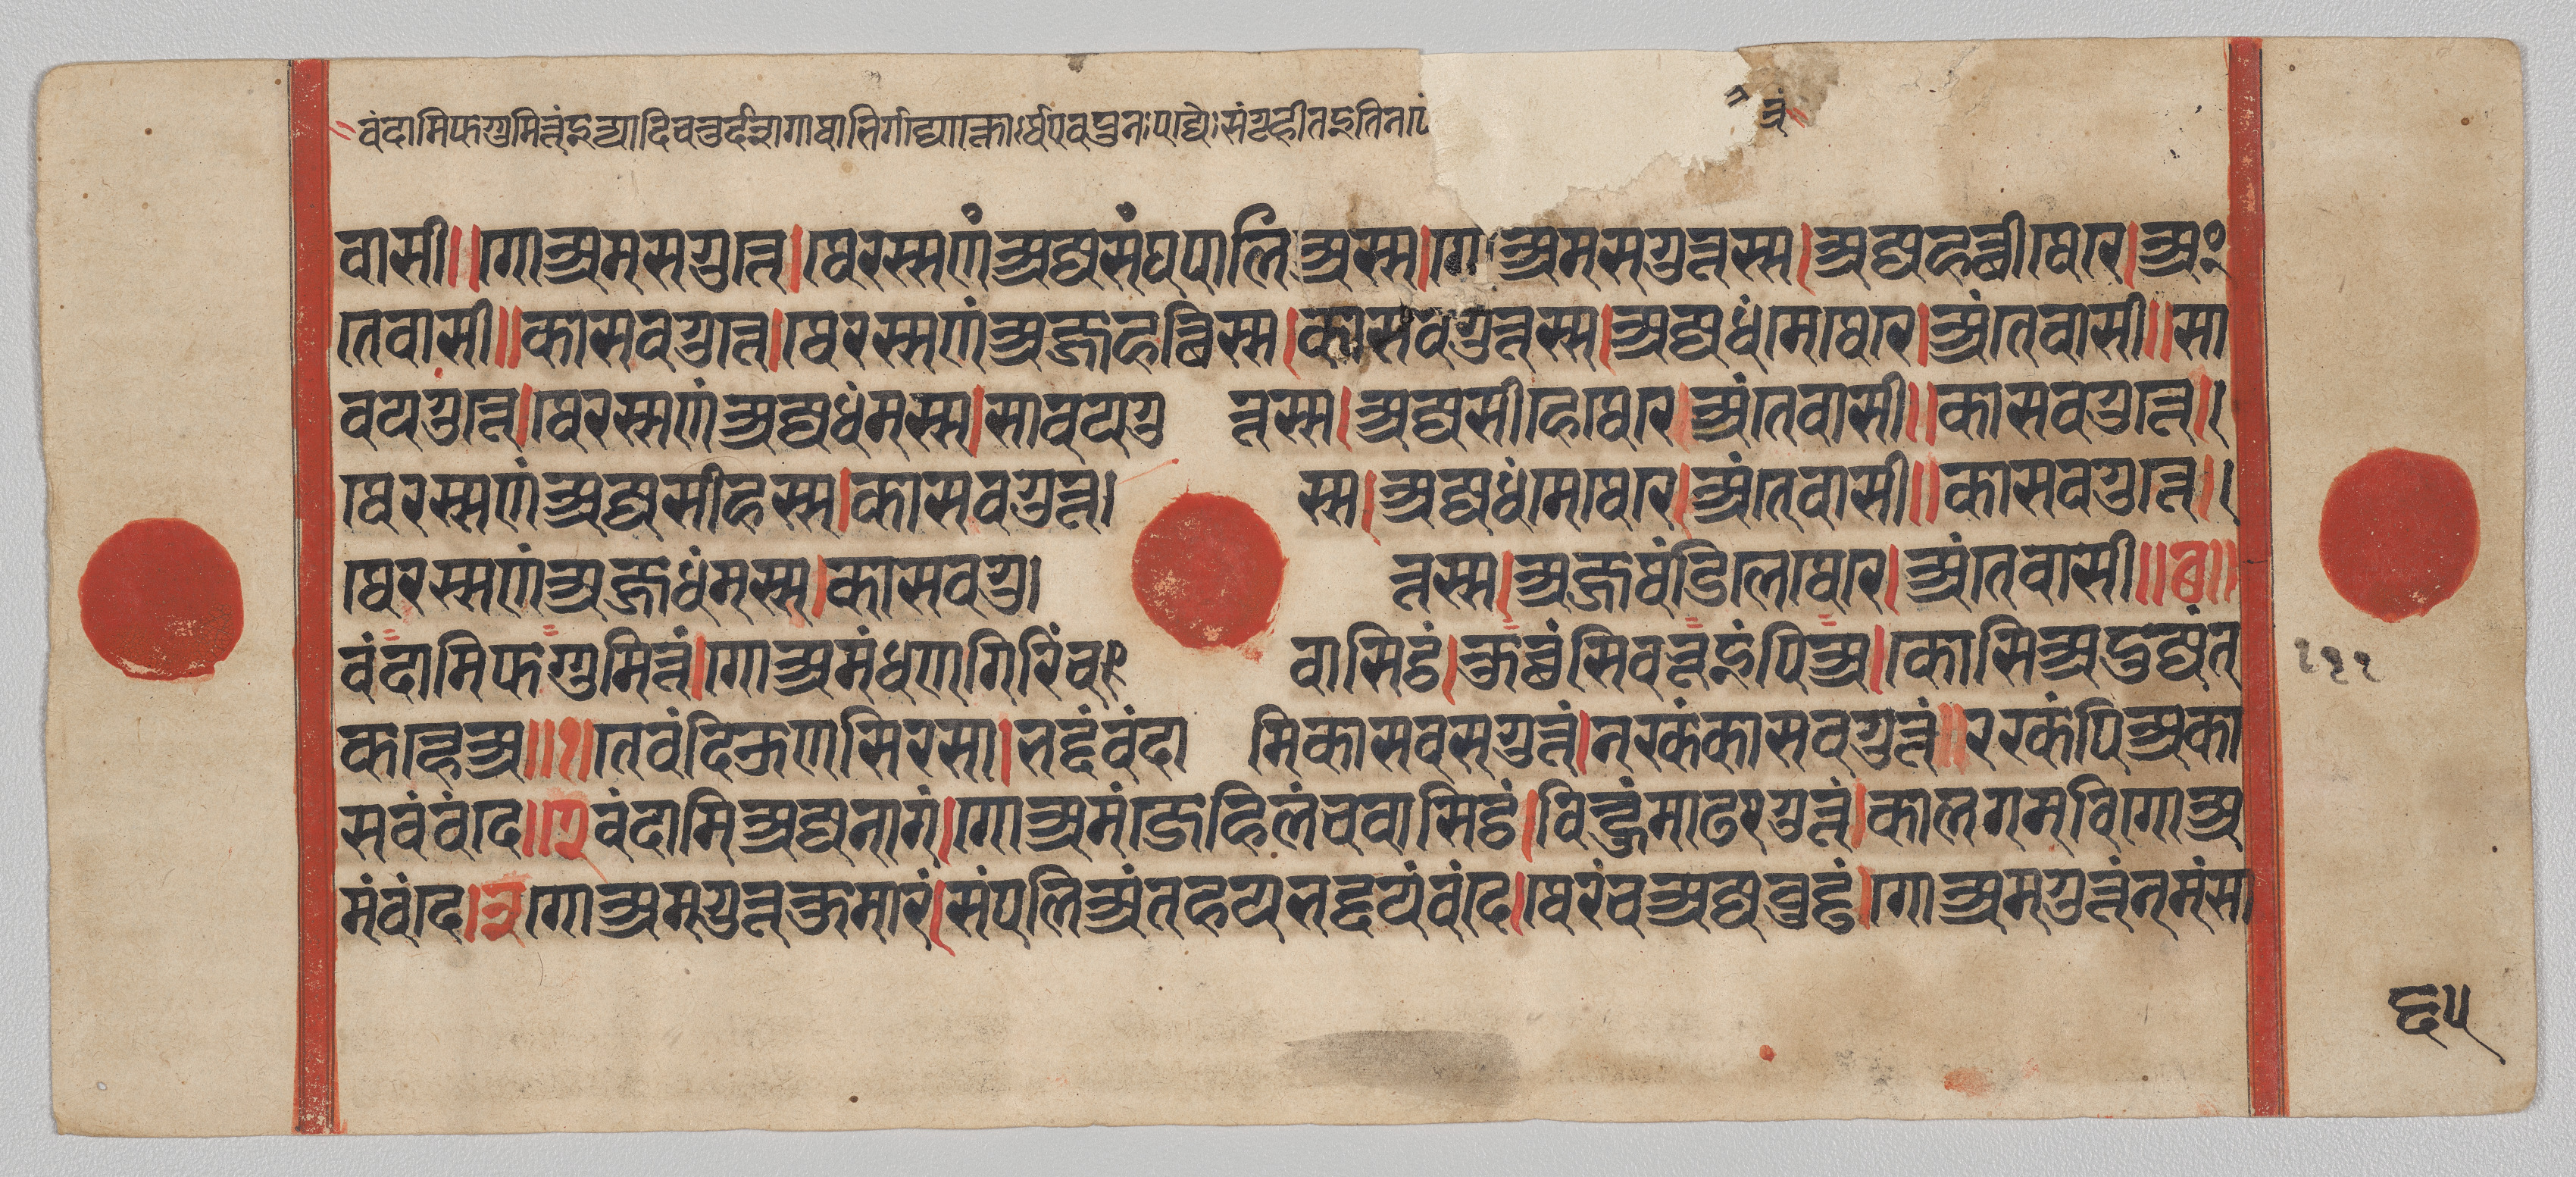 वंदामिफग्गुमित्तंइत्यादि
वासी॥गोअमसगुत्ते।थेरस्सणंअज्जसंघपालिअस्स।गोअमसगुत्तस्स।अज्जहत्थीथेरे।अं
तेवासी॥कासवगुत्ते।थेरस्सणंअज्जहत्थिस्स।कासवगुत्तस्स।अज्जधंमेथेरे।अंतेवासी॥सा
वयगुत्ते।थेरस्सणंअज्जधंमस्स।सावयगुत्तस्स।अज्जसीहेथेरे।अंतेवासी॥कासवगुत्ते।
थेरस्सणंअज्जसीहस्स।कासवगुत्तस्स।अज्जधंमेथेरे।अंतेवासी॥कासवगुत्ते।
थेरस्सणंअज्जधंमस्स।कासवगुत्तस्स।अज्जसंडिलेथेरे।अंतेवासी॥छ॥
वंदामिफग्गुमित्तं।गोअमंधणगिरिंच वासिट्ठं।कुच्छंसिवभूइंपिअ।कोसिअदुज्जंत
कण्हेअ॥१॥तेवंदिऊणसिरसा।भद्दंवंदामिकासवसगुत्तं।नरकंकासवगुत्तं॥ररकंपिअका
सवंवंदे॥२वंदामिअज्जनागं।गोअमंजेहिलंचवासिट्ठं।विण्हुंमाढरगुत्तं।कालगमविगोअ
मंवंदे।३गोअमगुत्तकुमारं।संपलिअंतहयभद्दयंवंदे।थेरंचअज्जवुड्ढं।गोअमगुत्तंनमंसा
११२
६५